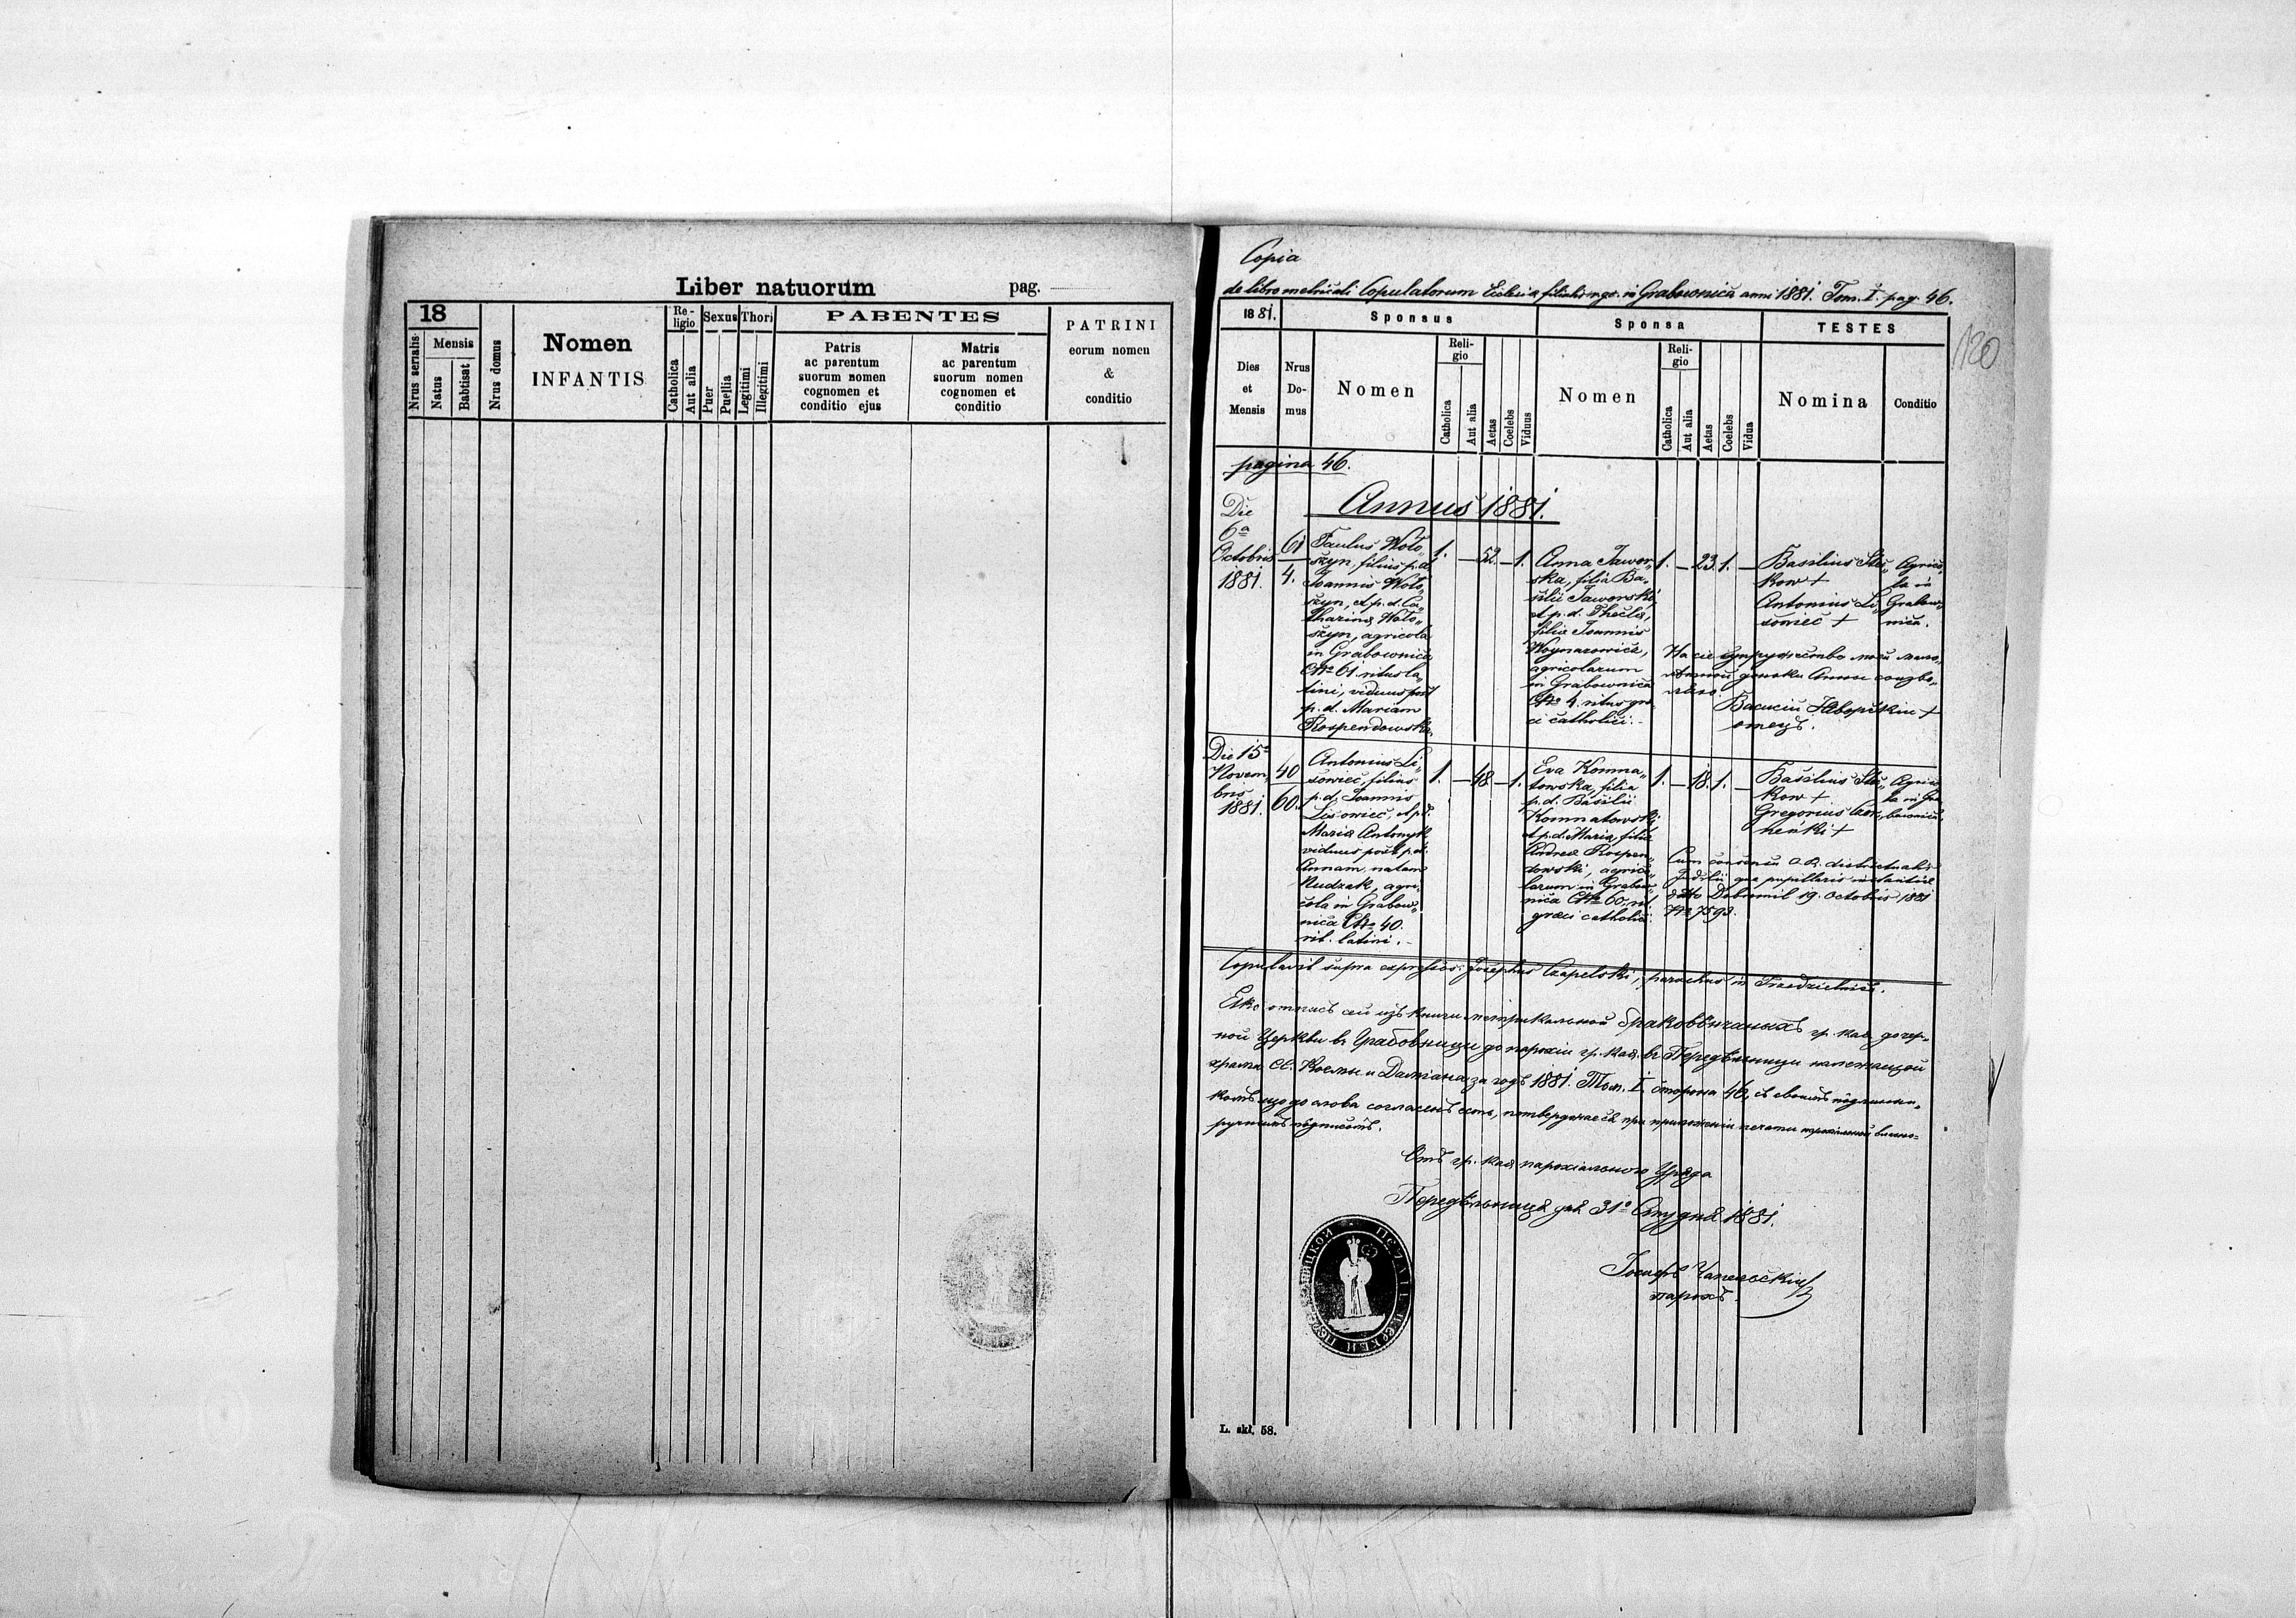 Liber natuorum pag.
18
Nrus serialis
Mensis
Natus
Babtisat
Nrus domus
Nomen
INFANTIS
Re-
ligio
Catholica
Aut alia
Sexus
Puer
Puellia
Thori
Legitimi
Illegitimi
PABENTES
Patris
ac parentum
suorum nomen
cognomen et
conditio ejus
Matris
ac parentum
suorum nomen
cognomen et
conditio
PATRINI
eorum nomen
&
conditio
Copia
de libro metricali Copulatorum Ecclesiæ filialis r. gr. in Grabownica anni 1881. Tom. I. pag. 46.
120
1881.
Dies
et
Mensis
Nrus
Do-
mus
Sponsus
Nomen
Reli-
gio
Catholica
Aut alia
Aetas
Coelebs
Viduus
Sponsa
Nomen
Reli-
gio
Catholica
Aut alia
Aetas
Coelebs
Vidua
TESTES
Nomina
Conditio
pagina 46.
Annus 1881.
Die
6a
Octobris
1881.
61
4.
Paulus Woło„
szyn, filius p.d.
Joannis Woło„
szyn, et p.d. Ca„
tharinæ Woło„
szyn, agricola
in Grabownica
CNo 61 ritus la„
tini, viduus post
p.d. Mariam
Rospendowska.
1. — 52. — 1.
Anna Jawor„
ska, filia Ba„
silii Jaworski,
et p.d. Theclæ,
filiæ Joannis
Woynarowicz,
agricolarum
in Grabownica
CNo 4. ritus græ„
ci catholici.
1. — 23. 1. —
Basilius Ste„
kow +
Antonius Li„
sowiec +
Agrico„
la in
Grabow„
nica.
На сіе супружество моей мало„
лѣтной доньки Анны соизво„
ляю.
Василій Яворскій +
отецъ.
Die 15a
Novem„
bris
1881.
40
60.
Antonius Li„
sowiec, filius
p.d. Joannis
Lisowiec, et p.d.
Mariæ Antonyk
viduus post p.d.
Annam natam
Rudzak, agri„
cola in Grabow„
nica CNo 40.
rit. latini.
1. — 48 — 1.
Eva Komna„
towska, filia
p.d. Basilii
Komnatowski
et p.d. Mariæ, filiæ
Andreæ Rospen„
dowski, agrico„
larum in Grabow„
nica CNo 60. rit.
græci catholici.
1. — 18. 1. —
Basilius Ste„
kow +
Gregorius Czor„
henki +
Agrico„
la in Gra„
bownica.
Cum consensu C.R. districtualis
Judicii qua pupillaris instantiæ
ddto Dobromil 19. Octobris 1881
No 7593.
Copulavit supra expressos: Josephus Czapelski, parochus in Przedzielnica.
Еже отпись сей изъ книги метрикальной браковѣнчаныхъ гр. каѳ. дочер„
ной Церкви въ Грабовници до парохіи гр. каѳ. въ Передѣльници належащой
храма Св. Космы и Даміана за годъ 1881. Том. I. сторона 46, съ своимъ подлинни„
комъ що до слова согласенъ есть, потверджаесь при приложеніи печати парохіальной власно„
ручнымъ підписомъ.
Отъ гр. каѳ. парохіального Уряда
Передѣльница дня 31o Студня 1881.
Іосифъ Чапельскій
парохъ.
L. skł. 58.